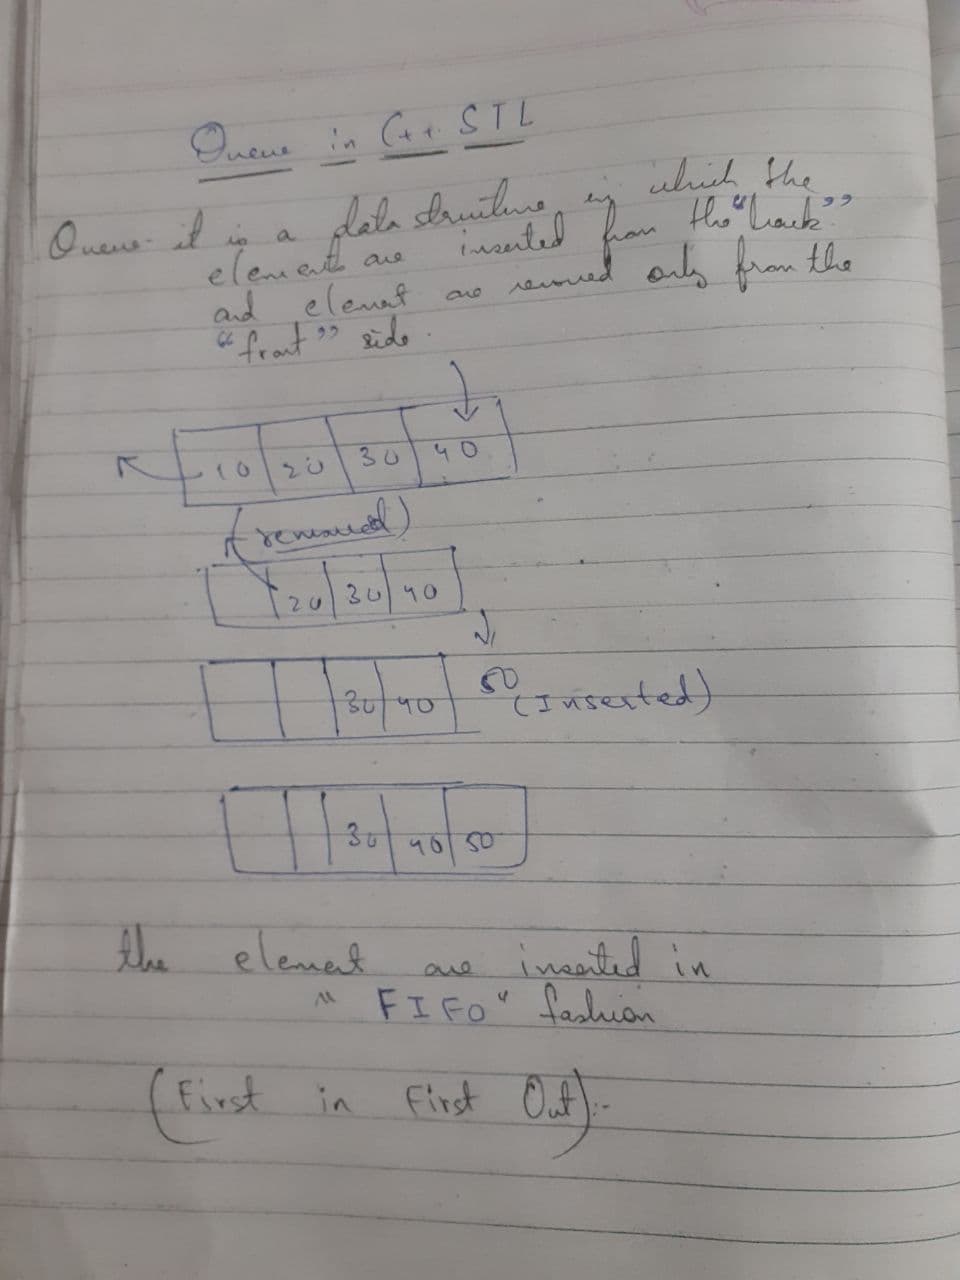 Queue in C++ STL
Queue- it is a data structure in which the
elements are inserted from the "back"
and element are removed only from the
"front" side.
10 20 30 40
(removed)
20 30 40
30 40 50
(Inserted)
30 40 50
the element are inserted in
"FIFO" fashion
(First in First Out):-